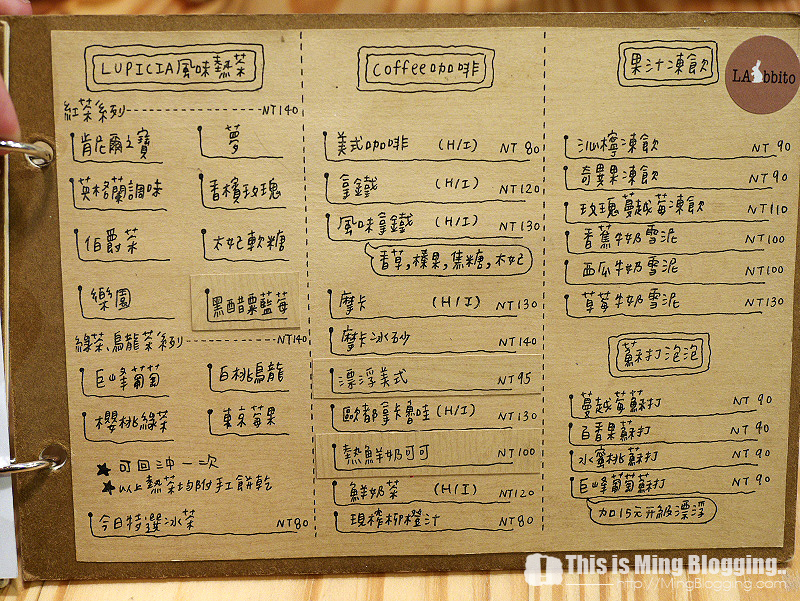 LUPICIA風味熱茶
紅茶系列 NT140
肯尼爾之寶
夢
英格蘭調味
香檳玫瑰
伯爵茶
太妃軟糖
樂園
黑醋粟藍莓
綠茶、烏龍茶系列 NT140
巨峰葡萄
白桃烏龍
櫻桃綠茶
東京莓果
★可回沖一次
★以上熱茶均附手工餅乾
今日特選冰茶 NT80
Coffee咖啡
美式咖啡 (H/I) NT 80
拿鐵 (H/I) NT120
風味拿鐵 (H/I) NT130
香草,榛果,焦糖,太妃
摩卡 (H/I) NT130
摩卡冰砂 NT140
漂浮美式 NT95
歐都拿卡魯哇(H/I) NT130
熱鮮奶可可 NT100
鮮奶茶 (H/I) NT120
現榨柳橙汁 NT80
果汁凍飲
LAbbito
沁檸凍飲 NT 90
奇異果凍飲 NT90
玫瑰蔓越莓凍飲 NT110
香蕉牛奶雪泥 NT100
西瓜牛奶雪泥 NT100
草莓牛奶雪泥 NT130
蘇打泡泡
蔓越莓蘇打 NT 90
百香果蘇打 NT 90
水蜜桃蘇打 NT 90
巨峰葡萄蘇打 NT 90
加15元升級漂浮
This is Ming Blogging..
http://MingBlogging.com